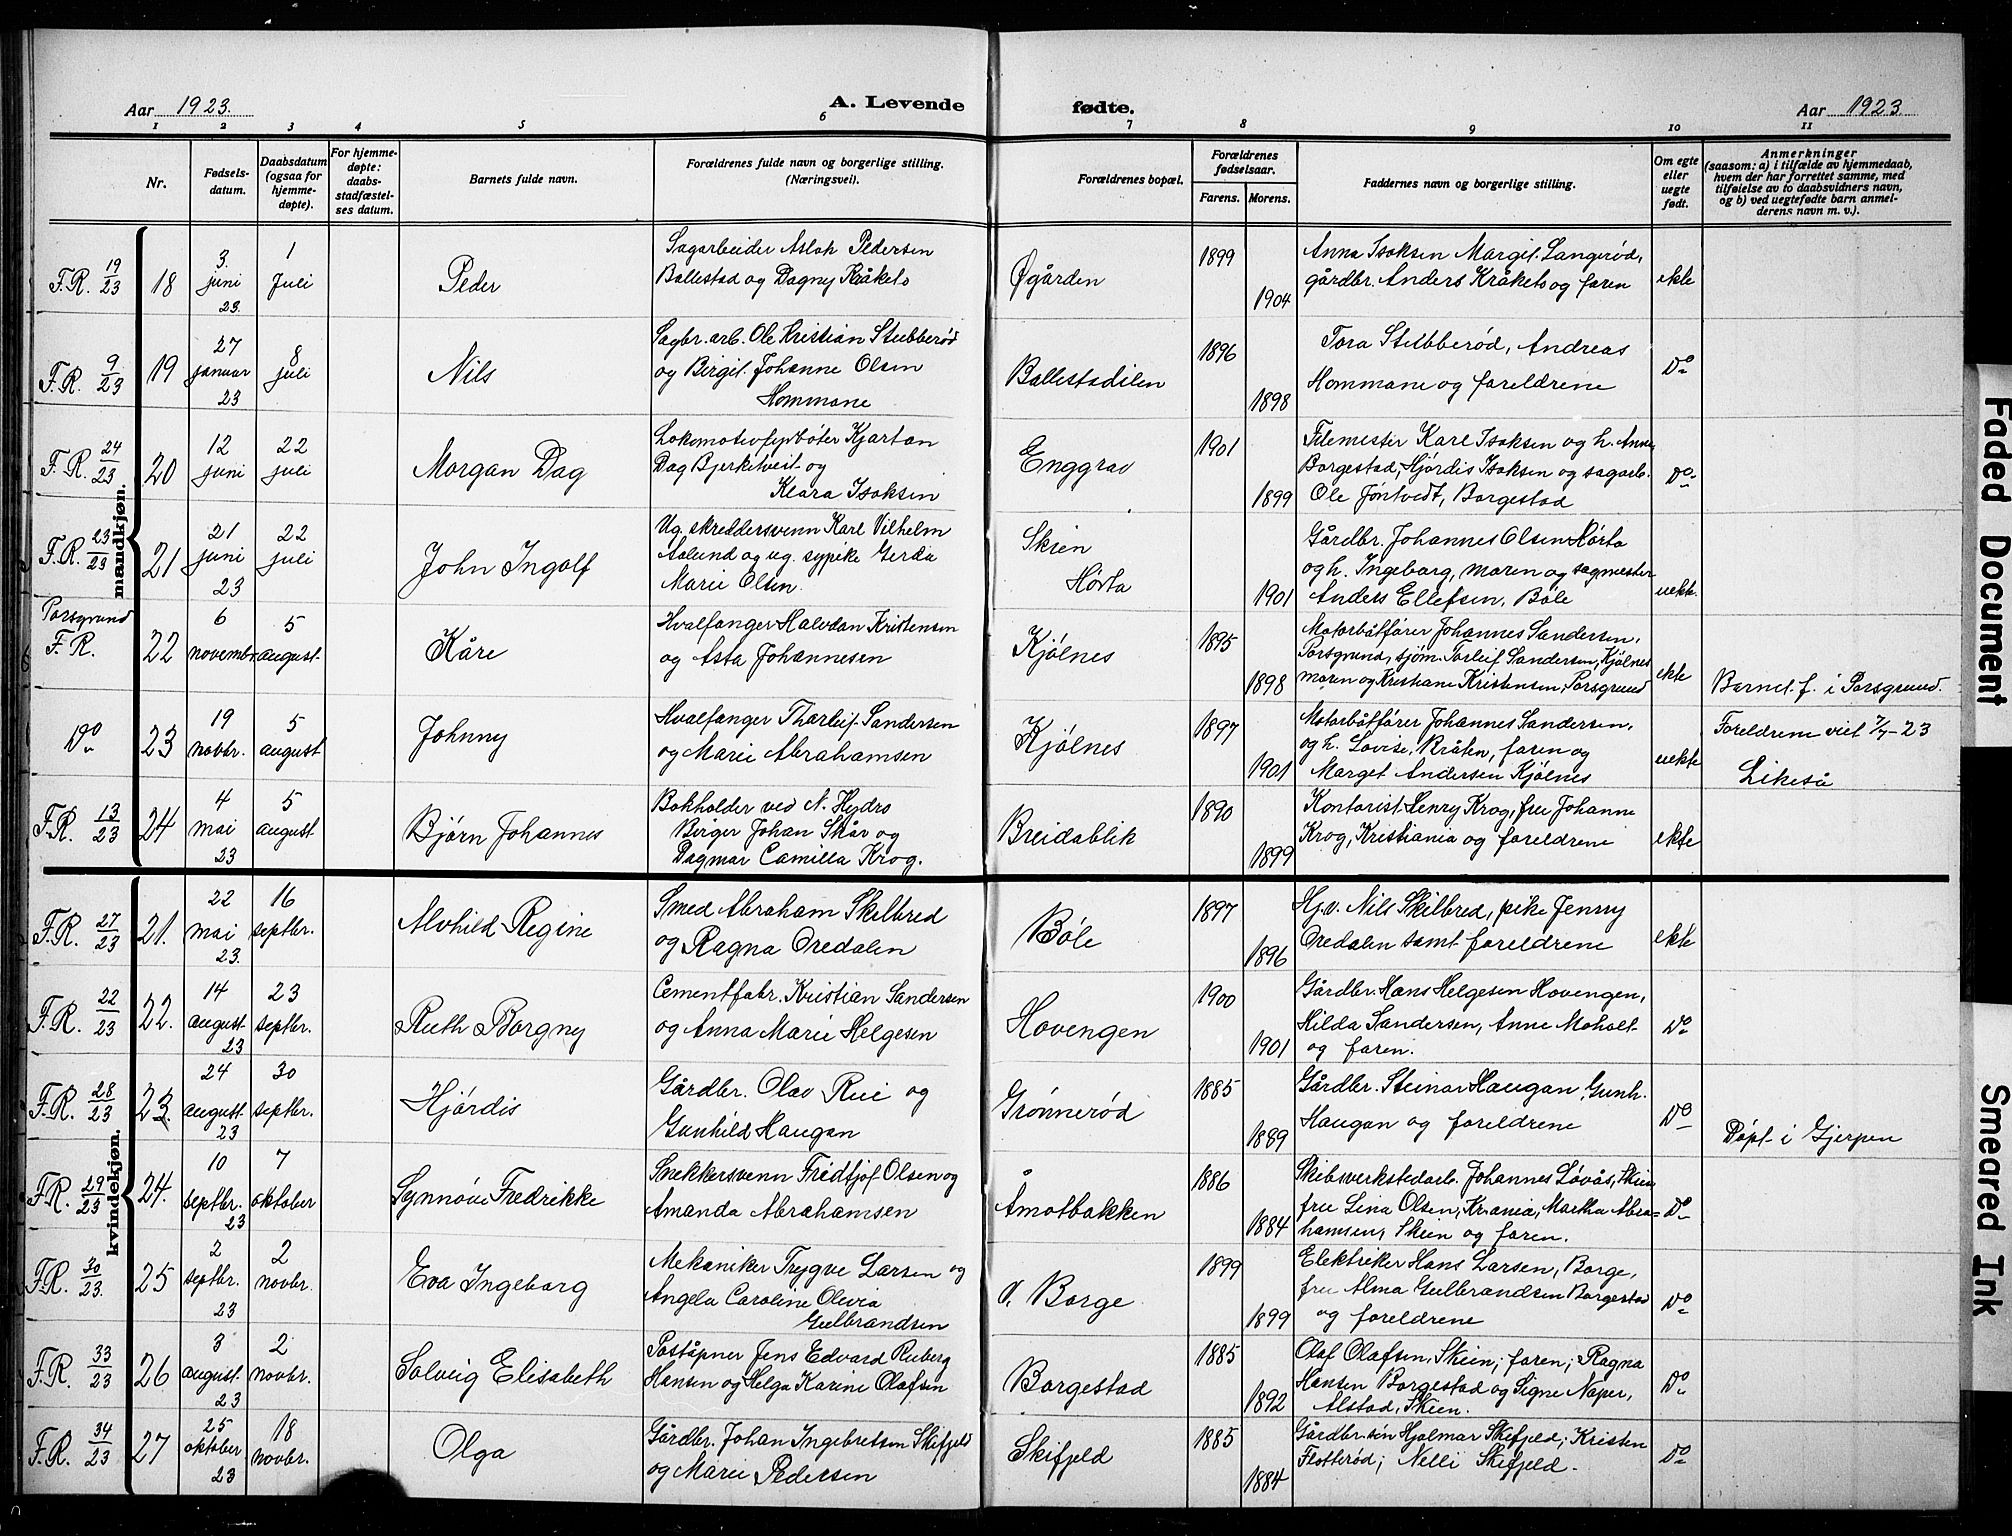 Aar 1923. A. Levende fødte. Aar 1923
1 2 3 4 5 6 7 8 9 10 11
Nr.
Fødsels-
datum.
Daabsdatum
(ogsaa for
hjemme-
døpte).
For hjemme-
døpte:
daabs-
stadfæstel-
ses datum.
Barnets fulde navn.
Forældrenes fulde navn og borgerlige stilling.
(Næringsvei).
Forældrenes bopæl.
Forældrenes
fødselsaar.
Farens. Morens.
Faddernes navn og borgerlige stilling.
Om egte
eller
uegte
født.
Anmerkninger
(saasom: a) i tilfælde av hjemmedaab,
hvem der har forrettet samme, med
tilføielse av to daabsvidners navn,
og b) ved uegtefødte barn anmel-
derens navn m. v.).
mandkjøn.
F.R. 19/23
18
3.
juni
23.
1
Juli
Peder
Sagarbeider Aslak Pedersen
Ballestad og Dagny Kråkets
Øgården
1899
1904
Anna Isaksen Margit Langerød,
gårdbr. Anders Kråkets og faren
ekte
F.R. 9/23
19
27
januar
23
8
juli
Nils
Sagbr. arb. Ole Kristian Stubberød
og Birgit Johanne Olsen
Hommane
Ballestadilen
1896
1898
Tora Stubberød, Andreas
Hommane og foreldrene
Do
F.R. 24/23
20
12
juni
22
juli
Morgan Dag
Lokomotivfyrbøter Kjartan
Dag Bjerkitveit og
Klara Isaksen
Enggrav
1901
1899
Filemester Karl Isaksen og h. Anne
Borgestad, Hjørdis Isaksen og sagarb.
Ole Jøntvedt, Borgestad
Do
F.R. 23/23
21
21
juni
23
22
juli
John Ingolf
Ug. skreddersvenn Karl Vilhelm
Aslund og ug. sypike Gerda
Marie Olsen.
Skien
Hørta
1901
Gårdbr. Johannes Olsen Hørta
og h. Ingeborg, moren og sagmester
Anders Ellefsen, Bøle
uekte.
Porsgrund
F.R.
22
6
novembr.
5
august
Kåre
Hvalfanger Halvdan Kristensen
og Asta Johannesen
Kjølnes
1895
1898
Motorbåtfører Johannes Sandersen,
Porsgrund, sjøm. Torleif Sandersen, Kjølnes
moren og Kristiane Kristensen, Porsgrund
ekte
Barnet f. i Porsgrund.
Do
23
19
novbr.
5
august
Johnny
Hvalfanger Tharleif Sandersen
og Marie Abrahamsen
Kjølnes
1897
1901
Motorbåtfører Johannes Sandersen,
og h. Lovise, Kråken, faren og
Marget Andersen Kjølnes
uekte
Foreldrene viet 7/7-23
Likeså
F.R. 13/23
24
4
mai
23
5
august
Bjørn Johannes
Bokholder ved N. Hydro
Berger Johan Skår og
Dagmar Camilla Krog.
Breidablik
1890
1899
Kontorist Henry Krog, fru Johanne
Krog, Kristiania og foreldrene
ekte
kvindekjøn.
F.R. 27/23
21.
22
mai
23.
16
septbr.
Alvhild Regine
Smed Abraham Skilbred
og Ragna Oredalen
Bøle
1897
1896
Hj.v. Nils Skilbred, pike Jenny
Oredalen samt foreldrene
ekte
F.R. 22/23
22.
14
august
23
23
septbr.
Ruth Borgny
Cementfabr. Kristian Sandersen
og Anna Marie Helgesen
Hovengen
1900
1901
Gårdbr. Hans Helgesen Hovengen,
Hilda Sandersen, Anne Moholt
og faren.
Do
F.R. 28/23
23.
24
august
23
30
septbr.
Hjørdis
Gårdbr. Olav Rui og
Gunhild Haugan
Grønnerød
1885
1889
Gårdbr. Steinar Haugan, Gunh.
Haugan og foreldrene
Do
Døpt i Gjerpen
F.R. 29/23
24.
10
septbr.
23
7
oktober
Synnøve Fredrikke
Snekkersvenn Fredtjof Olsen og
Amanda Abrahamsen
Åmotbakken
1886
1884
Skibsverkstedarb. Johannes Løvås, Skien
fru Lina Olsen, Kr.ania, Martha Abra-
hamsen, Skien og faren.
Do
F.R. 30/23.
25
2
septbr.
23
2
novbr.
Eva Ingeborg
Mekaniker Trygve Larsen og
Angela Caroline Olivia
Gulbrandsen
v. Borge
1899
1899
Elektriker Hans Larsen, Borge,
fru Alma Gulbrandsen Borgestad
og foreldrene
Do
F.R. 33/23
26
3
august
23
2
novbr.
Solveig Elisabeth
Poståpner Jens Edvard Ruberg
Hansen og Helga Karine Olafsen
Borgestad
1885
1892
Olaf Olafsen, Skien; faren; Ragna
Hansen Borgestad og Signe Naper,
Alstad, Skien.
Do
F.R. 34/23
27
25
oktober
23
18
novbr.
Olga
Gårdbr. Johan Ingebretsen Skifjeld
og Marie Pedersen
Skifjeld
1885
1884
Gårdbr. sön Hjalmar Skifjeld; Kristen
Flotterød; Nelli Skifjeld.
Do
Faded Document
Smeared Ink